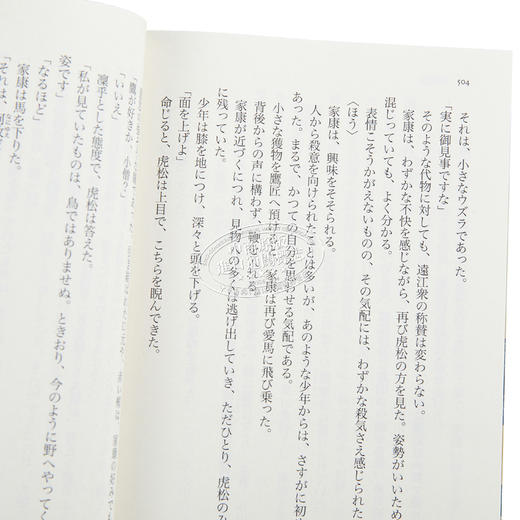 504
それは、小さなウズラであった。
「実に御見事ですな」
そのような代物に対しても、遠江衆の称賛は変わらない。
家康は、わずかな不快を感じながら、再び虎松の方を見た。姿勢がいいため
混じっていても、よく分かる。
表情こそうかがえないものの、その気配には、わずかな殺気さえ感じられた
〈ほう〉
家康は、興味をそそられる。
人から殺意を向けられたことは多いが、あのような少年からは、さすがに初め
あった。まるで、かつての自分を思わせる気配である。
小さな獲物を鷹匠へ預けると、家康は再び愛馬に飛び乗った。
背後からの声に構わず、鞭を入れる。
家康が近づくにつれ、見物人の多くは逃げ出していき、ただひとり、虎松のみ
に残っていた。
少年は膝を地につけ、深々と頭を下げる。
「面を上げよ」
命じると、虎松は上目で、こちらを睨んできた。
「鷹が好きか、小僧？」
「いいえ」
凜乎とした態度で、虎松は答えた。
「私が見ていたものは、鳥ではありませぬ。ときおり、今のように野へやってく
姿です」
「なるほど」
家康は馬を下りた。
「それは、何故